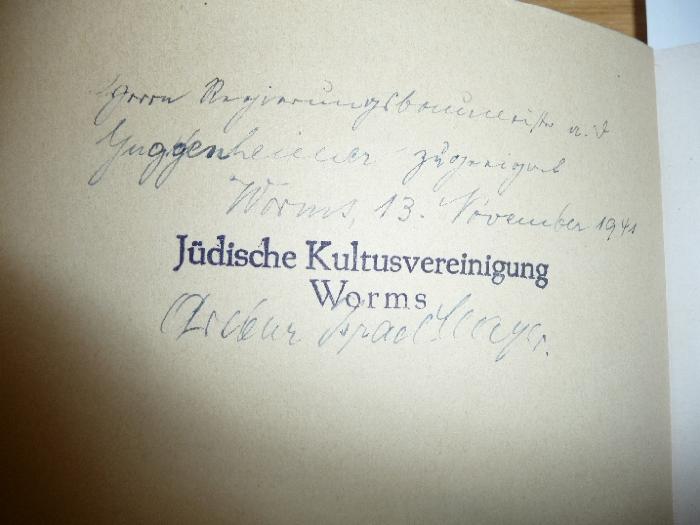 Herrn Regierungsbaumeister a. d
Guggenheimer zugeeignet
Worms, 13. November 1941
Jüdische Kultusvereinigung
Worms
Israel Mayer.